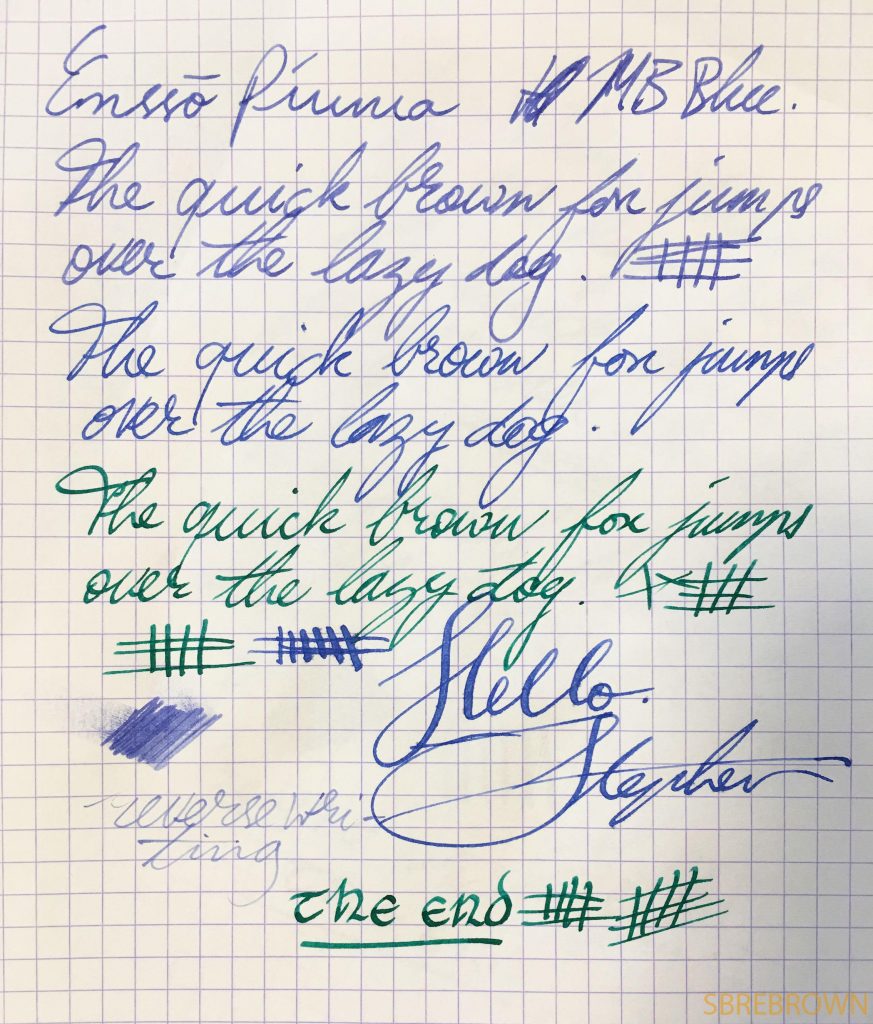 Enssō Piuma MB Blue.
The quick brown fox jumps
over the lazy dog.
The quick brown fox jumps
over the lazy dog.
The quick brown fox jumps
over the lazy dog.
Hello.
Stephen
reverse wri-
ting
the end
SBREBROWN